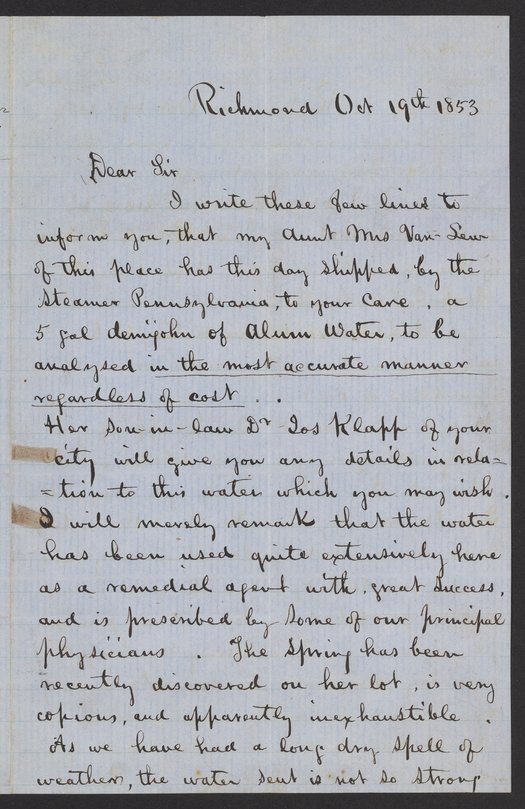 Richmond Oct 19th 1853
Dear Sir
I write these few lines to
inform you, that my Aunt Mrs Van-Lew
of this place has this day shipped, by the
Steamer Pennsylvania, to your care, a
5 gal demijohn of Alum Water, to be
analysed in the most accurate manner
regardless of cost . .
Her Son-in-law Dr Jos Klapp of your
city will give you any details in rela=
=tion to this water which you may wish.
I will merely remark that the water
has been used quite extensively here
as a remedial agent with, great success,
and is prescribed by some of our principal
physicians . The Spring has been
recently discovered on her lot, is very
copious, and apparently inexhaustible .
As we have had a long dry spell of
weather, the water sent is not so strong